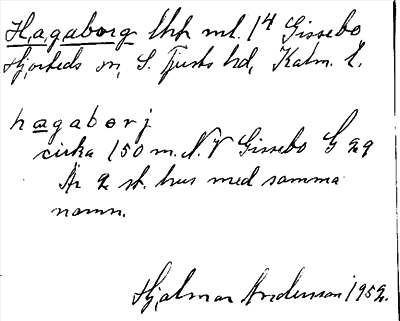 Hagaborg lht ml. 14 Gissebo
Hjorteds sn, S. Tjusts hd, Kalm. l.
hagaborj
cirka 150 m. N.V Gissebo G 29
Är 2 st. hus med samma
namn.
Hjalmar Andersson 1952.